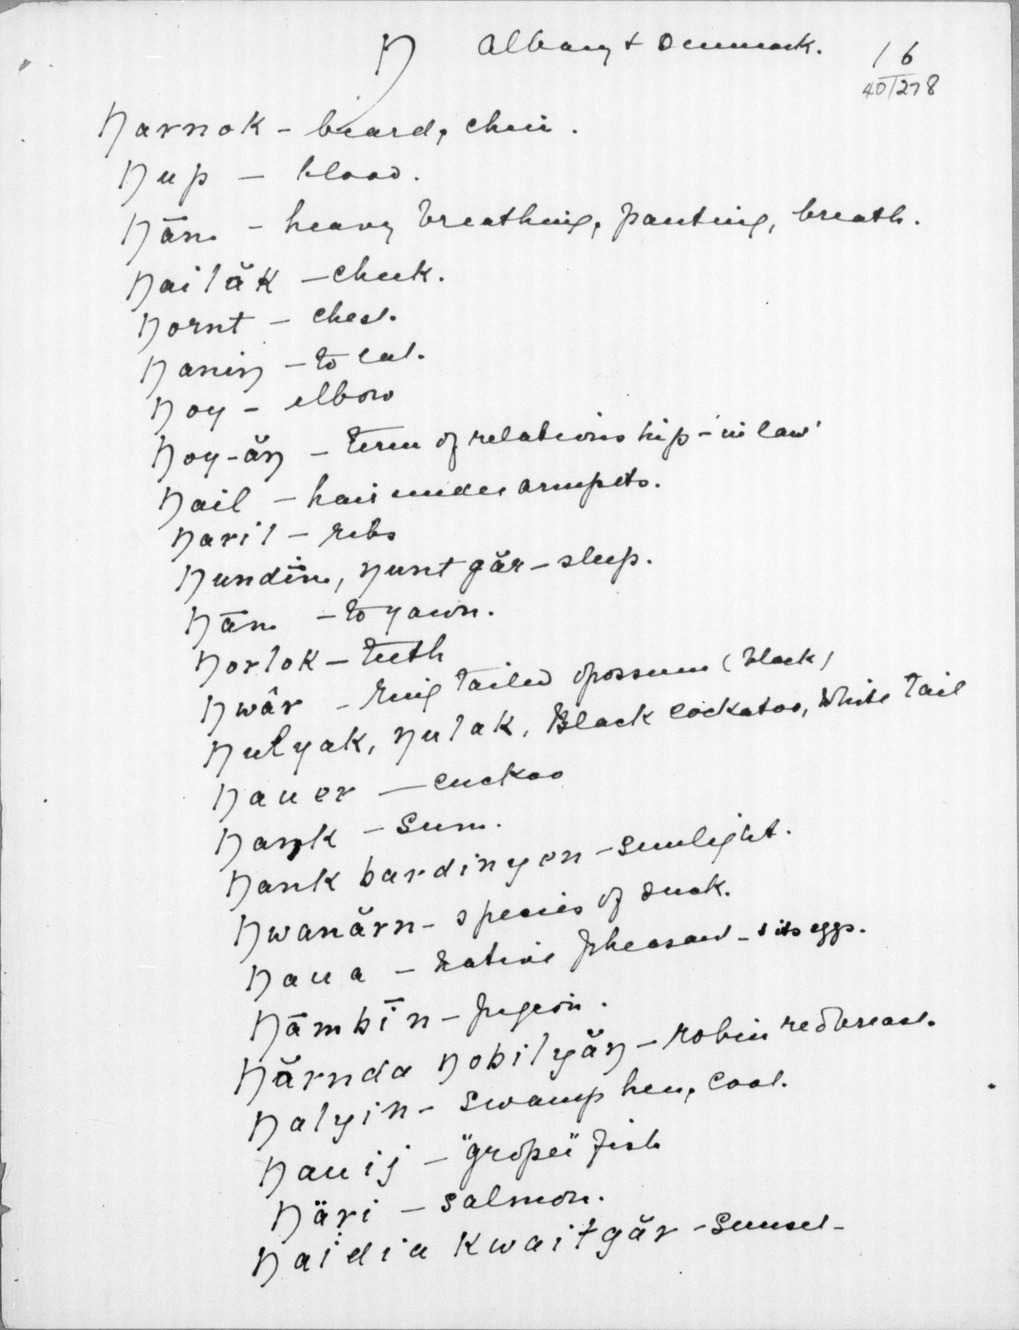 Ŋ Albany + Denmark. 16
40/278
Ŋarnok - beard, chin.
Ŋup - blood.
Ŋān - heavy breathing, panting, breath.
Ŋailăk - cheek.
Ŋornt - chest.
Ŋaniŋ - to eat.
Ŋoy - elbow
Ŋoy-ăŋ - term of relationship - 'in law'
Ŋail - hair under armpits.
Ŋaril - ribs
Ŋundīn, ŋunt găr - sleep.
Ŋān - to yawn.
Ŋorlok - teeth
Ŋwâr - ring tailed opossum (black)
Ŋulyak, ŋulak, Black cockatoo, White tail
Ŋauer - cuckoo
Ŋaŋk - sun.
Ŋank bardinyen - sunlight.
Ŋwanărn - species of duck.
Ŋaua - native pheasant - & its eggs.
Ŋāmbīn - pigeon.
Ŋărnda ŋobilyăŋ - robin redbreast.
Ŋalyin - swamp hen, coot.
Ŋauij - "groper" fish
Ŋäri - salmon.
Ŋaidia kwaitgăr - sunset -